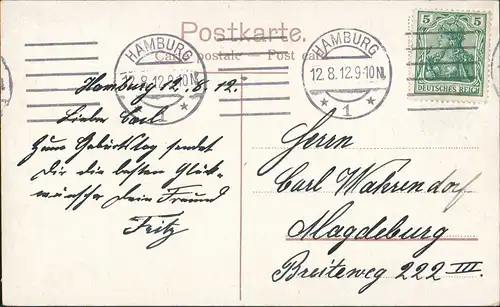 Postkarte.
Carte postale — Post card
HAMBURG
12.8.12.9-10N.
* 1 *
HAMBURG
12.8.12.9-10N.
* 1 *
5 5
DEUTSCHES REICH
Hamburg 12.8.12.
Lieber Carl
Zum Geburtstag sendet
Dir die besten Glück-
wünsche Dein Freund
Fritz
Herrn
Carl Wahrendorf
Magdeburg
Breiteweg 222 III.